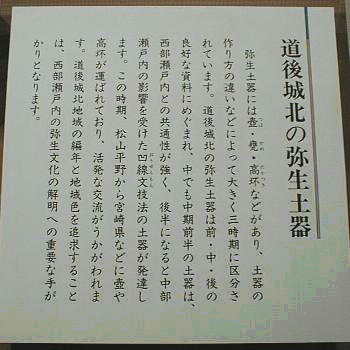 道後城北の弥生土器
弥生土器には壺・甕・高坏などがあり、土器の
作り方の違いなどによって大きく三時期に区分さ
れています。道後城北の弥生土器は前・中・後の
良好な資料にめぐまれ、中でも中期前半の土器は、
西部瀬戸内との共通性が強く、後半になると中部
瀬戸内の影響を受けた凹線文技法の土器が発達し
ます。この時期、松山平野から宮崎県などに壺や
高坏が運ばれており、活発な交流がうかがわれま
す。道後城北地域の編年と地域色を追求すること
は、西部瀬戸内の弥生文化の解明への重要な手が
かりとなります。